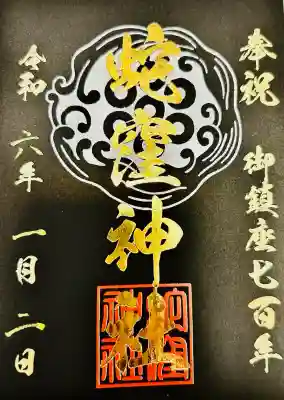 奉祝 御鎮座七百年
蛇窪神社
令和 六年 一月 二日